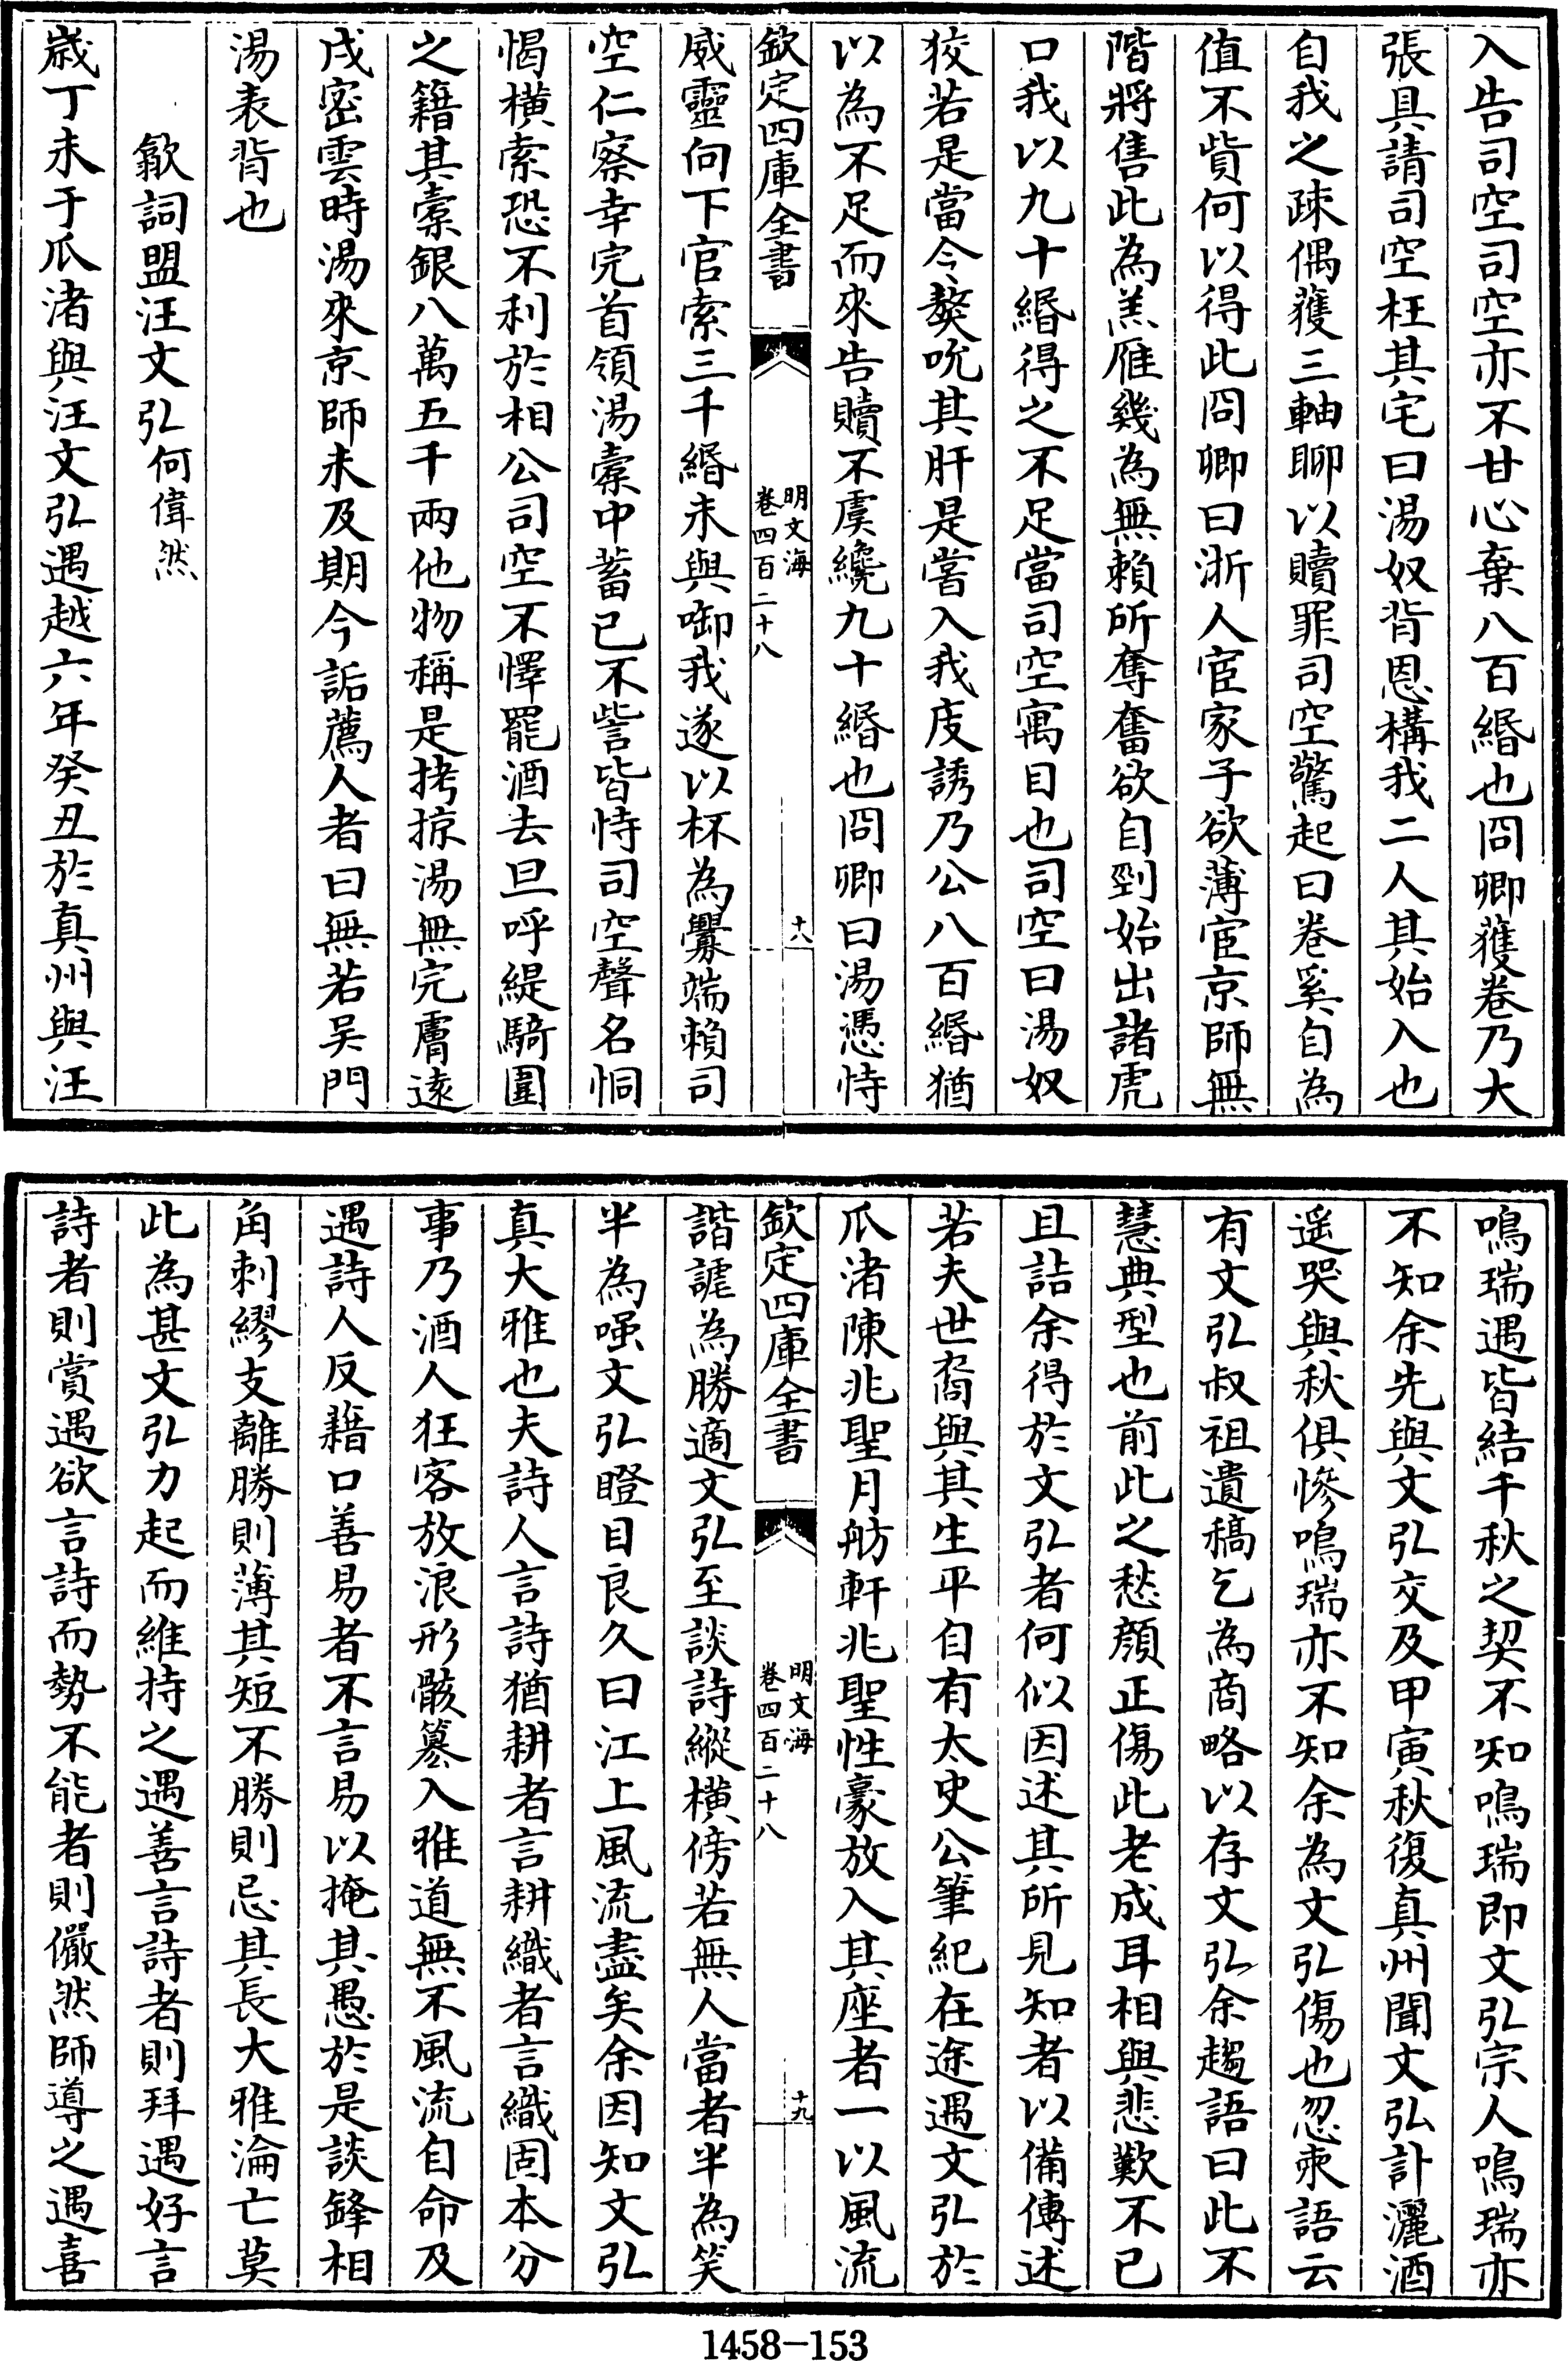 入告司空司空亦不甘心棄八百緡也冏卿獲卷乃大
張具請司空枉其宅曰湯奴背恩構我二人其始入也
自我之疎偶獲三軸聊以贖罪司空驚起曰卷奚自為
值不貲何以得此冏卿曰浙人宦家子欲薄宦京師無
階將售此為羔雁幾為無賴所奪奮欲自剄始出諸虎
口我以九十緡得之不足當司空寓目也司空曰湯奴
狡若是當今獒吮其肝是嘗入我庋誘乃公八百緡猶
以為不足而來告贖不虞纔九十緡也冏卿曰湯憑恃
欽定四庫全書
明文海
卷四百二十八
十八
威靈向下官索三千緡未與啣我遂以杯為釁端賴司
空仁察幸完首領湯橐中蓄已不訾皆恃司空聲名恫
愒橫索恐不利於相公司空不懌罷酒去旦呼緹騎圍
之籍其橐銀八萬五千兩他物稱是拷掠湯無完膚遠
戍密雲時湯來京師未及期今詬薦人者曰無若吳門
湯表背也
歙詞盟汪文弘何偉然
歲丁未于瓜渚與汪文弘遇越六年癸丑於真州與汪
鳴瑞遇皆結千秋之契不知鳴瑞即文弘宗人鳴瑞亦
不知余先與文弘交及甲寅秋復真州聞文弘訃灑酒
遥哭與秋俱慘鳴瑞亦不知余為文弘傷也忽柬語云
有文弘叔祖遺稿乞為商略以存文弘余趨語曰此不
慧典型也前此之愁顔正傷此老成耳相與悲歎不已
且詰余得於文弘者何似因述其所見知者以備傳述
若夫世裔與其生平自有太史公筆紀在途遇文弘於
瓜渚陳兆聖月舫軒兆聖性豪放入其座者一以風流
欽定四庫全書
明文海
卷四百二十八
十九
諧謔為勝適文弘至談詩縱橫傍若無人當者半為笑
半為嗔文弘瞪目良久曰江上風流盡矣余因知文弘
真大雅也夫詩人言詩猶耕者言耕織者言織固本分
事乃酒人狂客放浪形骸簒入雅道無不風流自命及
遇詩人反藉口善易者不言易以掩其愚於是談鋒相
角刺繆支離勝則薄其短不勝則忌其長大雅淪亡莫
此為甚文弘力起而維持之遇善言詩者則拜遇好言
詩者則賞遇欲言詩而勢不能者則儼然師導之遇喜
1458-153